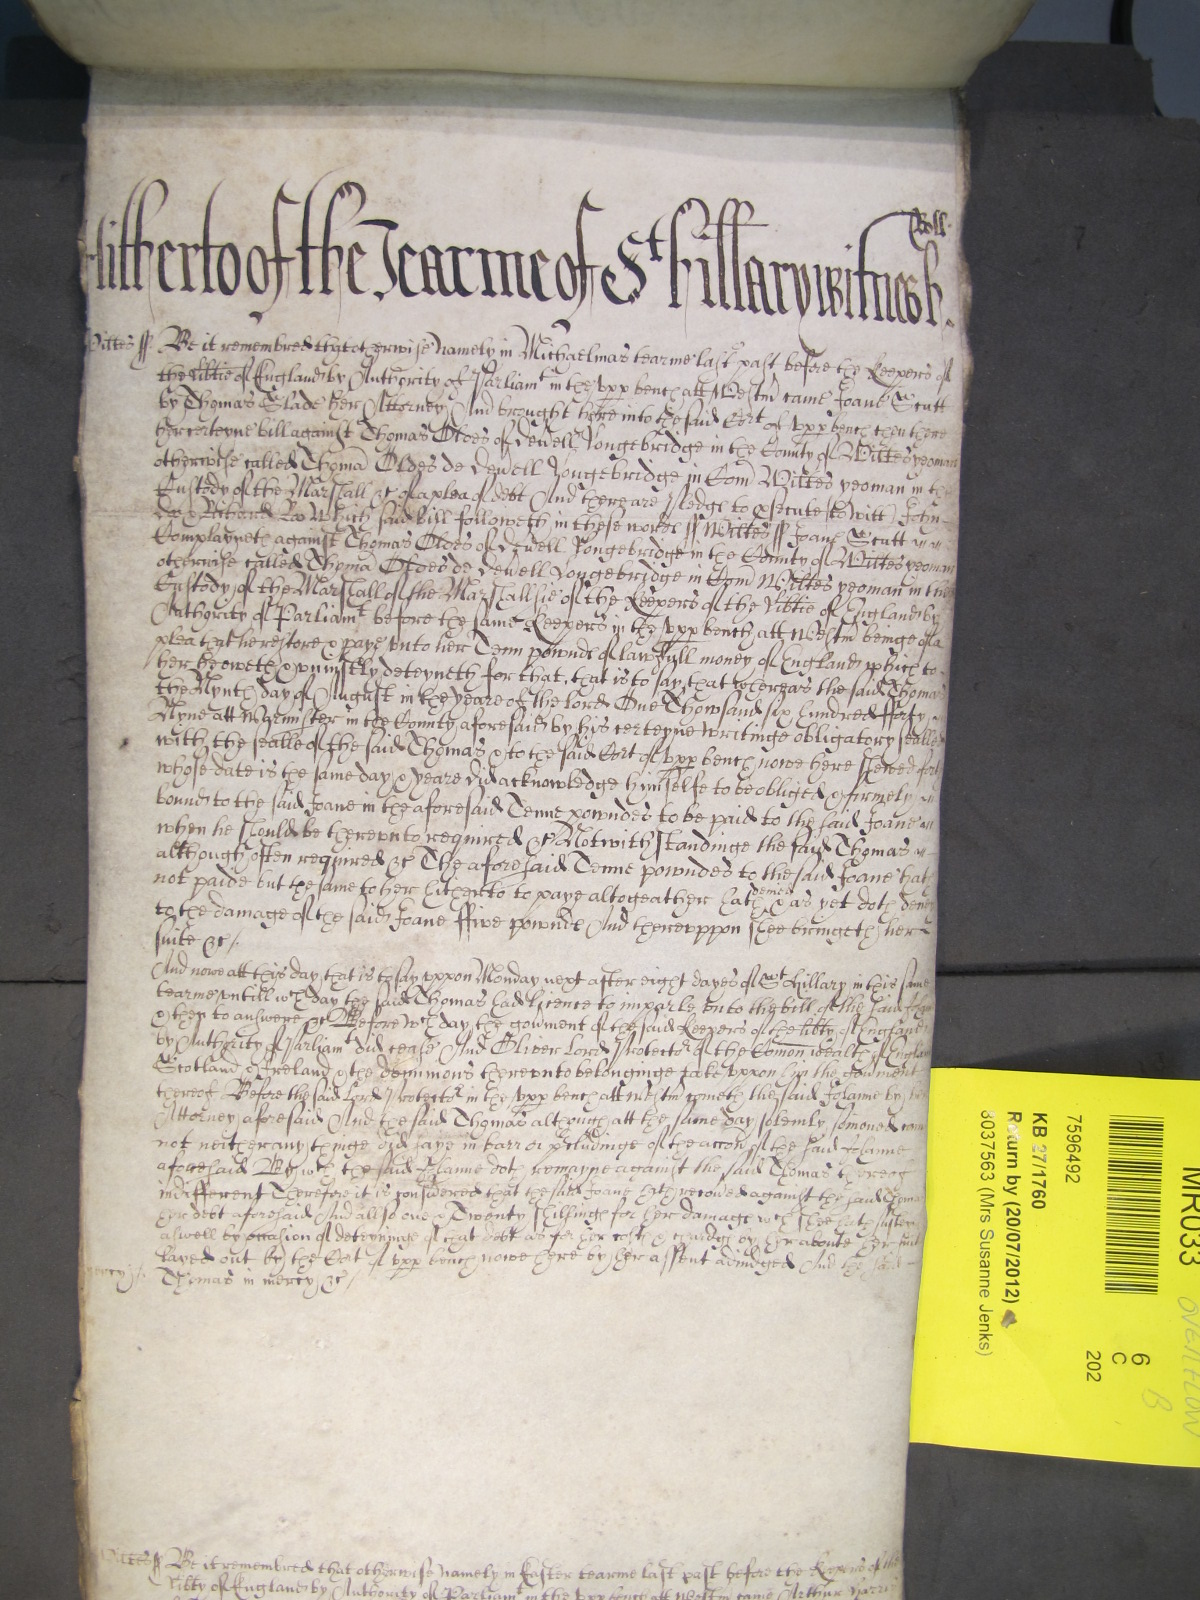 Roll
Hitherto of the Tearme of St Hillary witnesh.
Wiltes ss Be it remembred that otherwise namely in Michaelmas tearme last past before the Keepers of
the libtie of England by Authority of Parliamt in the Upp bench att Westm came Joane Scutt
by Thomas Slade her Attorney And brought here into the said Cort of Upp bench then there
her certeyne bill against Thomas Oldes of Dewell Longebridge in the County of Wiltes yeoman
otherwise called Thoma Oldes de Dewell Longebridge in Com Wiltes yeoman in the
Custody of the Marshall &c of a plea of debt And there are pledge to psecute to witt John
Do & Richard Roo Which said bill followeth in these words ss Wiltes ss Joane Scutt
Complayneth against Thomas Oldes of Dewell Longebridge in the County of Wiltes yeoman
otherwise called Thoma Oldes de Dewell Longebridge in Com Wiltes yeoman in the
Custody of the Marshall of the Marshallsie of the Keepers of the libtie of England by
Authority of Parliamt before the same Keepers in the Upp bench att Westm beinge of a
plea that he restore & paye unto her Tenn pownds of lawfull money of England which to
her he oweth & uniustly deteyneth for that, that is to say, that whereas the said Thomas
the Nynth day of August in the yeare of the lord One Thowsand six hundred fforty
Nyne att Wermister in the County aforesaid by his certeyne writinge obligatory sealled
with the sealle of the said Thomas & to the said Cort of Upp bench nowe here shewed forth
whose date is the same day & yeare did acknowledge himselfe to be obliged & firmely
bound to the said Joane in the aforesaid Tenne powndes to be paid to the said Joane
when he should be thereunto required &c Notwithstandinge the said Thomas
although often required &c The aforesaid Tenne powndes to the said Joane hath
not paide but the same to her hitherto to paye altogeather hath denied & as yet doth deny
to the damage of the said Joane ffive pownds And thereuppon shee bringeth her
suite &c/.
And nowe att this day, that is to say uppon Monday next after eight dayes of St Hillary in this same
tearme untill wch day the said Thomas had licence to imparle unto the bill of the said
& then to answere &c Before wch day the govment of the said Keepers of the libty of England
by Authority of Parliamt did cease And Oliver Lord Protector of the Comon wealth of England
Scotland & Ireland & the dominions thereunto belonginge take uppon him the govment
thereof Before the said Lord Protector in the Upp bench att Westm cometh the said Johanne by her
Attorney aforesaid And the said Thomas although att the same day solemly somoned came
not neither any thinge did saye in barr or pcludinge of the accon of the said Johanne
aforesaid By wch the said Johanne doth remayne against the said Thomas thereof
indifferent Therefore it is considered that the said Joane hath recoved against the said Thomas
her debt aforesaid And allso over Twenty shillings for her damage wch shee hath susteyned
aswell by occasion of deteyninge of that debt as for her costs & chardgs by her aboute her suit
layed out by the Cort of Upp bench nowe here by her assent adiudged And the said
mercy/. Thomas in mercy &c/
Wiltes ss Be it remembred that otherwise namely in Easter tearme last past before the Keepers of the
libty of England by Authority of Parliamt in the Upp bench att Westm came Arthur Harris
MR033
OVERFLOW
B
6
C
202
7596492
KB 27/1760
Return by (20/07/2012)
8037563 (Mrs Susanne Jenks)